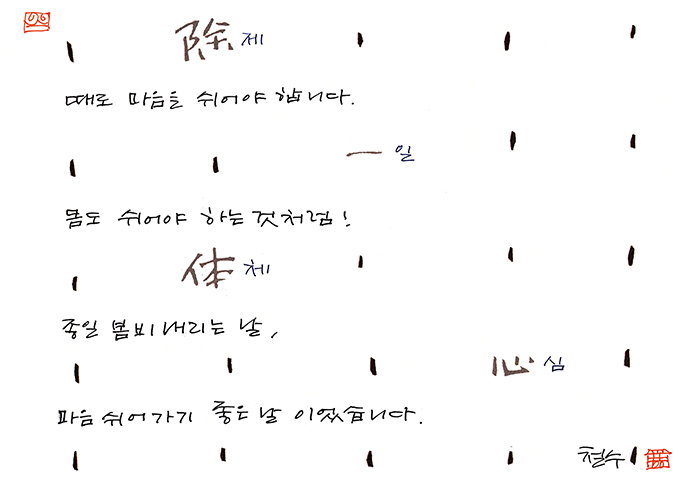 除 제
때로 마음을 쉬어야 합니다.
一 일
몸도 쉬어야 하는 것처럼!
体 체
종일 봄비 내리는 날,
心 심
마음 쉬어가기 좋은 날 이었습니다.
철수